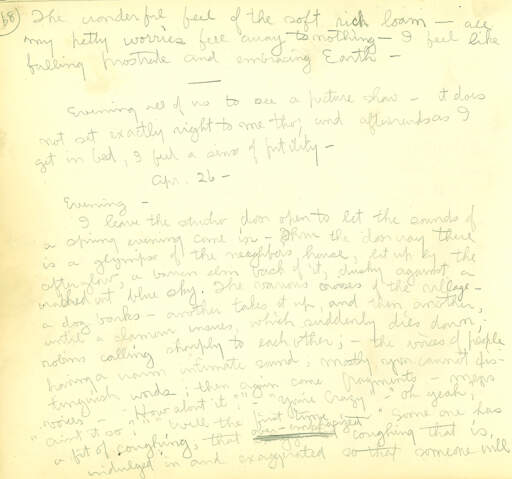 68) The wonderful feel of the soft rich loam — all
my petty worries fell away to nothing — I feel like
falling prostrate and embracing Earth —
Evening all of us to see a picture show — it does
not set exactly right to me tho, and afterwards as I
get in bed, I feel a sense of futility —
Apr. 26 —
Evening —
I leave the studio door open to let the sounds of
a spring evening come in — Thru the doorway there
is a glimpse of the neighbors house, lit up by the
afterglow, a barren elm back of it, dusky against a
washed out blue sky. The various noises of the village —
a dog barks — another takes it up, and then another,
until a clamour ensues, which suddenly dies down;
robins calling sharply to each other; — the voices of people
having a warm intimate sound, mostly you cannot dis-
tinguish words; then again come fragments —
voices — "How about it" — "you're crazy" — "oh yeah,"
"aint it so" — "well the first time " Some one has
a fit of coughing, that coughing that is
indulged in and exaggerated so that someone will